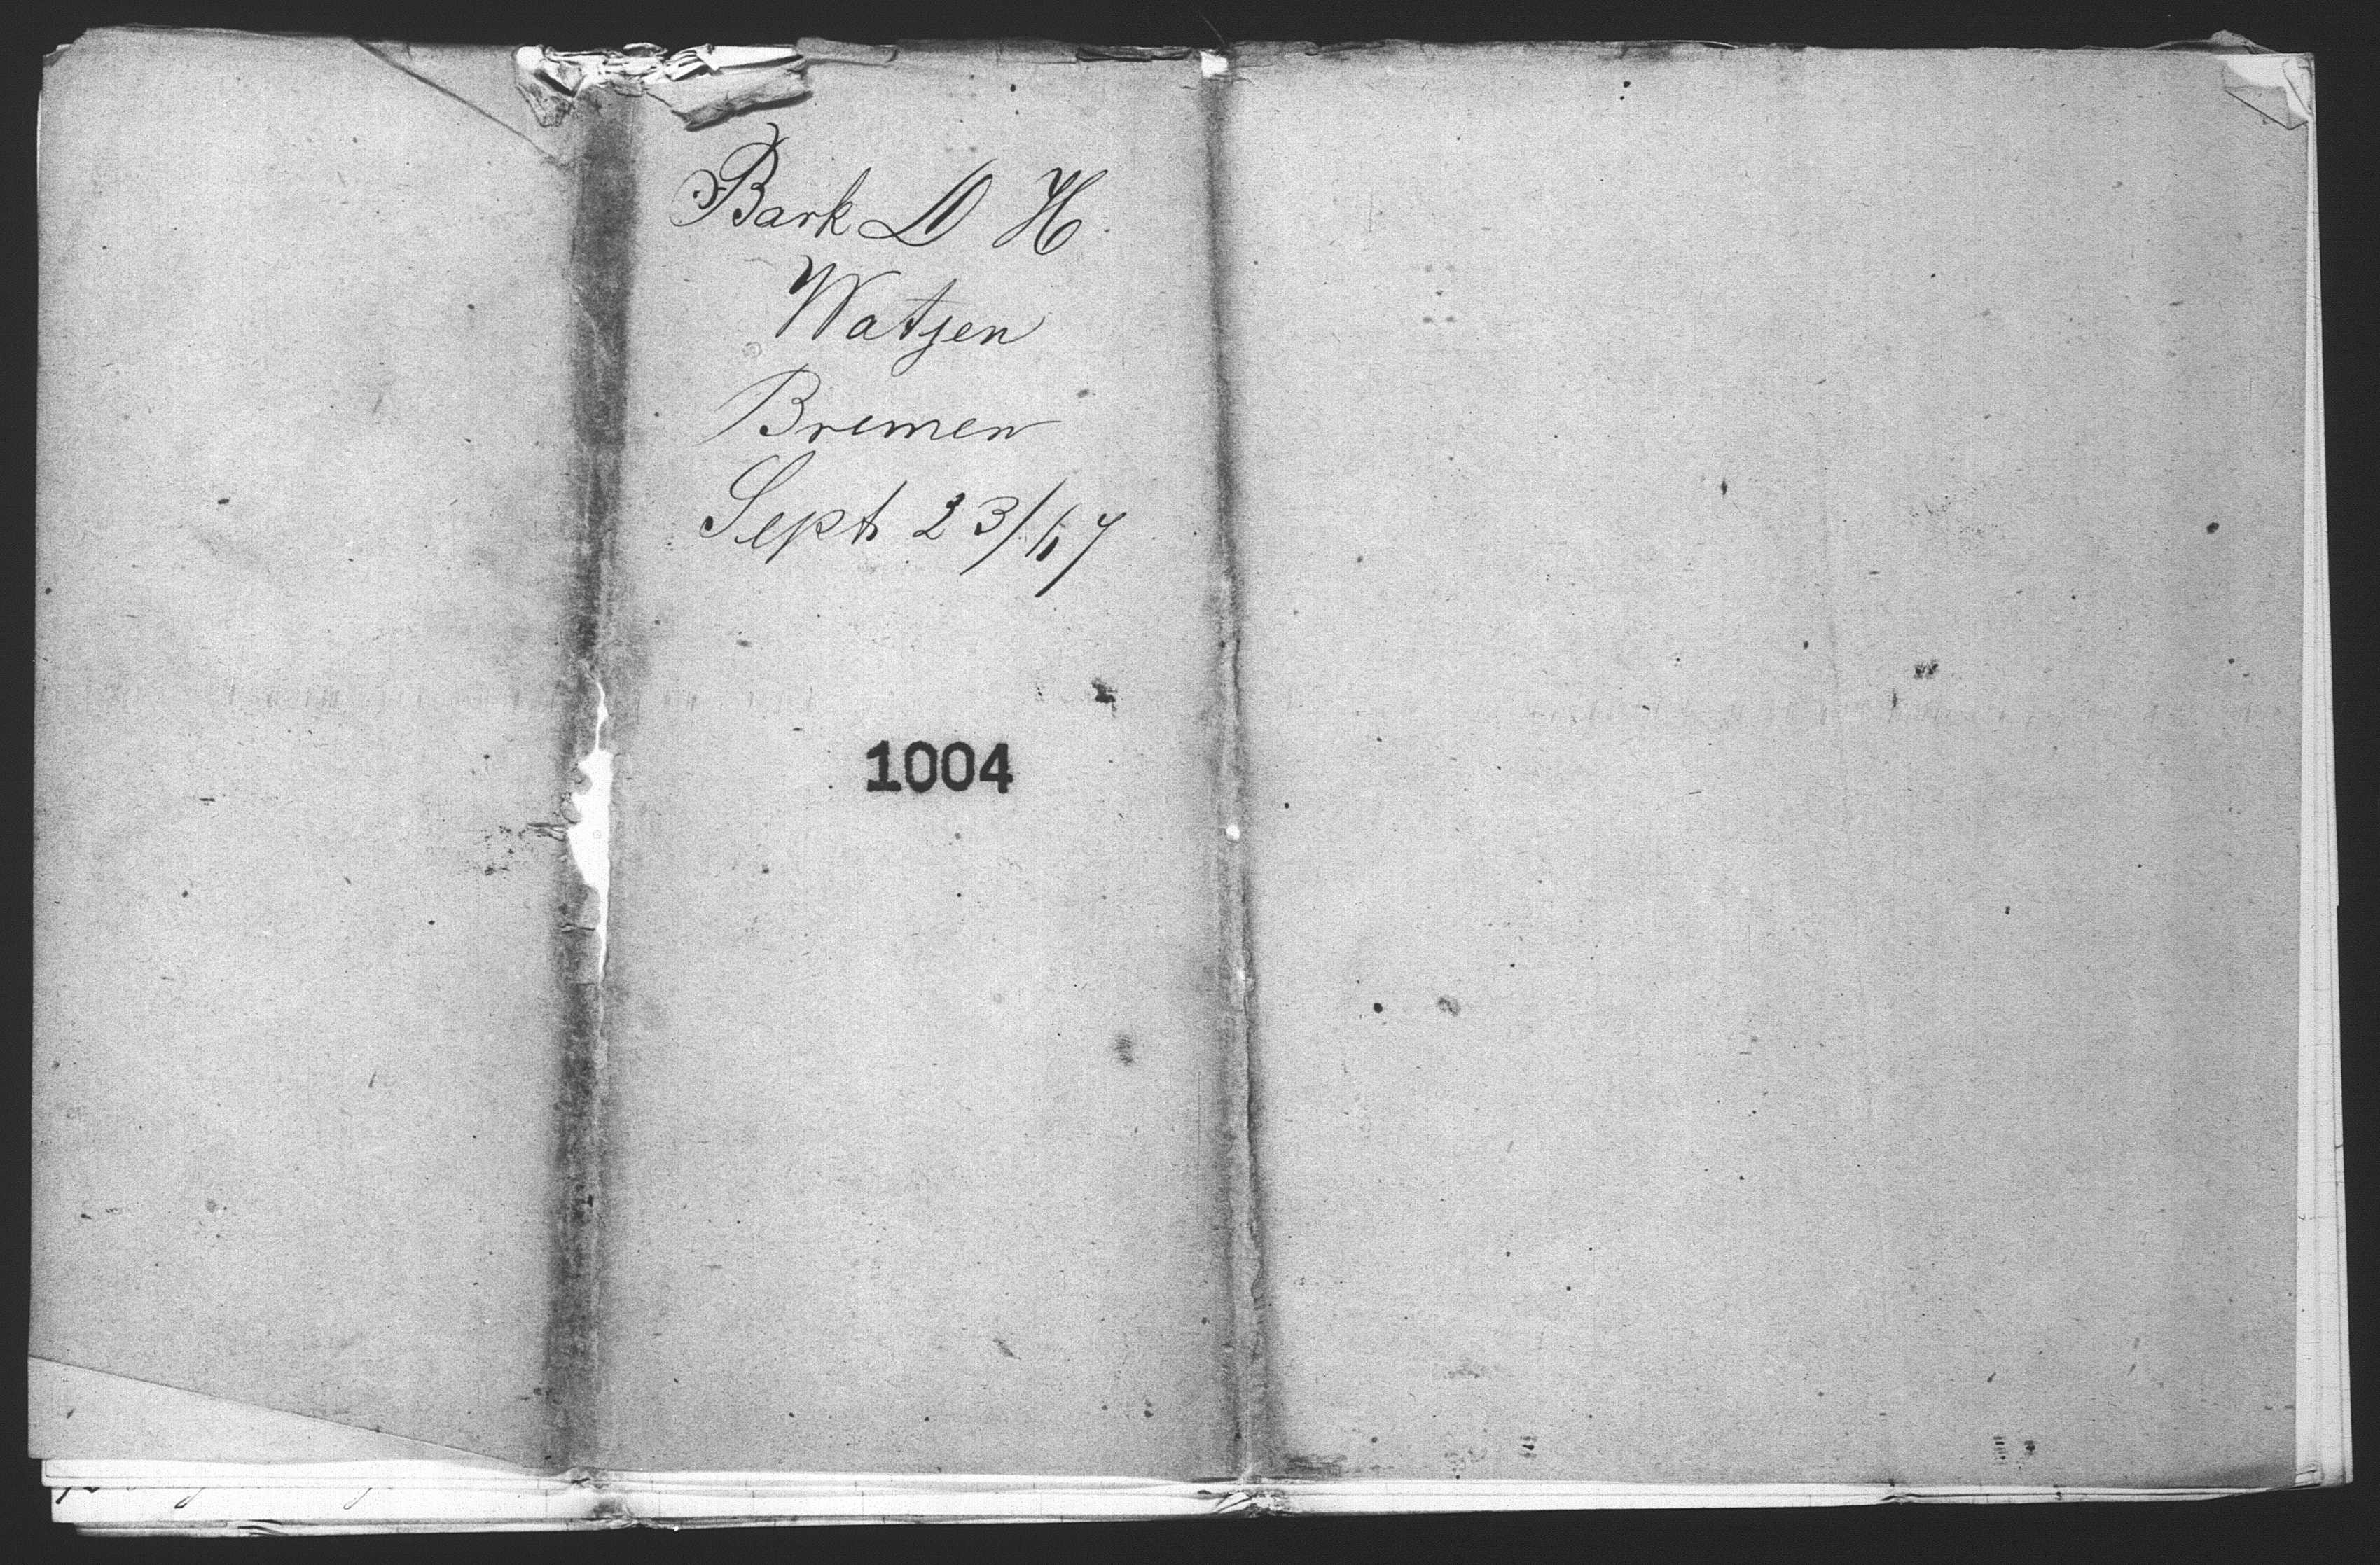 Bark D H
Watjen
Bremen
Sept 23/67
1004